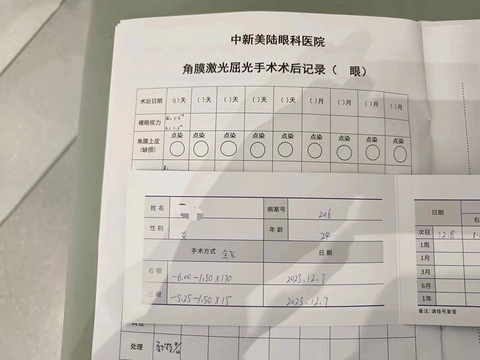 中新美陆眼科医院
角膜激光屈光手术术后记录（ 眼）
术后日期 (1)天 ( )天 ( )天 ( )天 ( )月 ( )月 ( )月 ( )月
裸眼视力
角膜上皮 点染 点染 点染 点染 点染 点染 点染 点染
(缺损)
姓名 病案号 206
性别 女 年龄 24
手术方式 全飞 日期
右眼 -6.00-1.50×170 2023.12.7
左眼 -5.25-1.50×15 2023.12.7
处理
日期 右
次日 12.8
1周
1月
3月
6月
1年
备注:请挂号复查